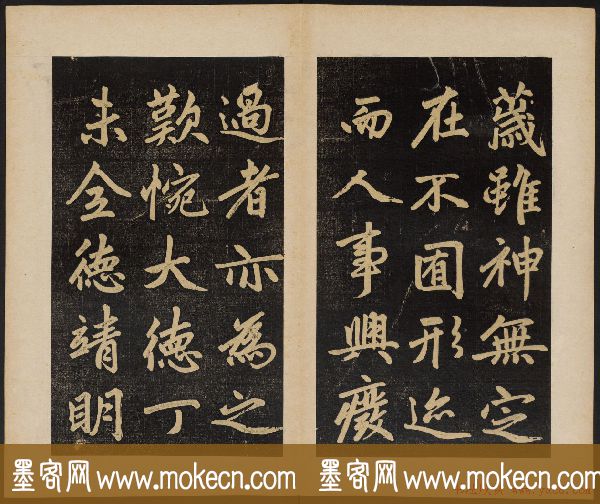 蕆雖神無定
在不囿形迹
而人事興廢
過者亦為之
歎惋大德丁
未全德靖明
墨客网 www.mokecn.com
墨客网 www.mokecn.com